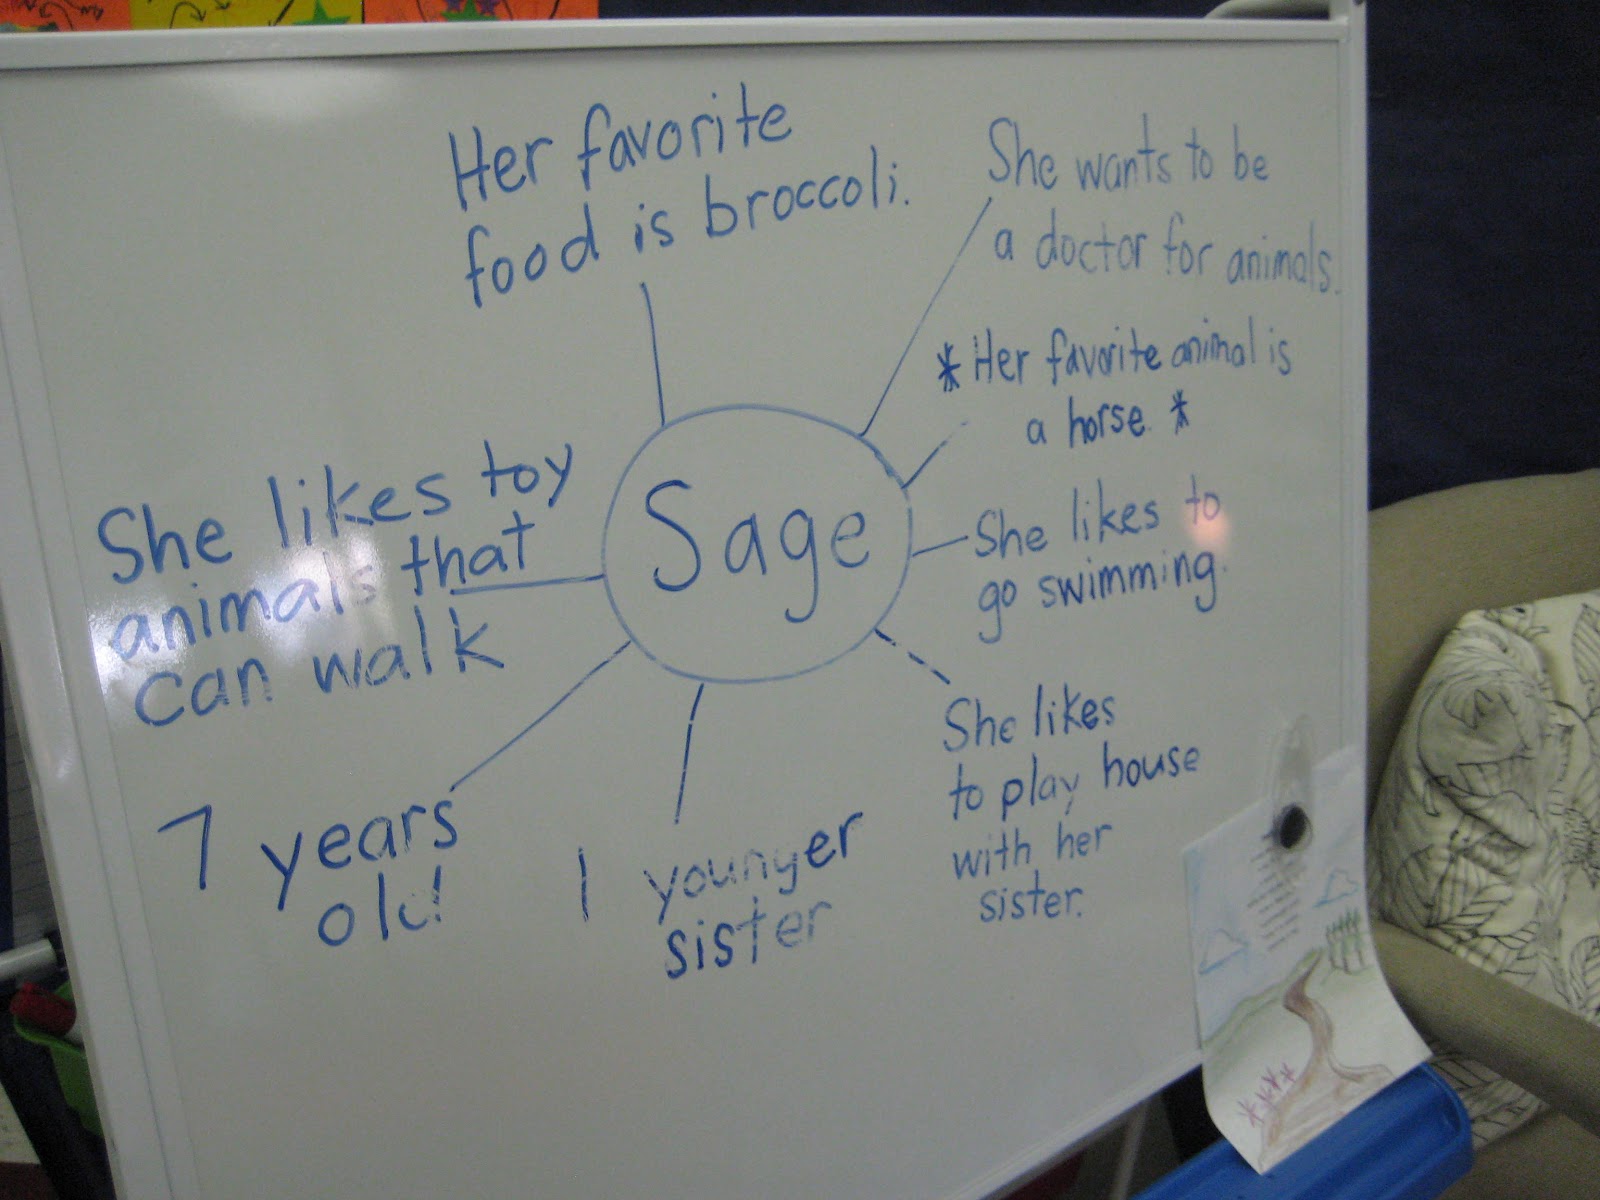 Her favorite
food is broccoli.
She wants to be
a doctor for animals.
*Her favorite animal is
a horse.*
She likes to
go swimming.
She likes
to play house
with her
sister.
1 younger
sister
7 years
old
She likes toy
animals that
can walk
Sage